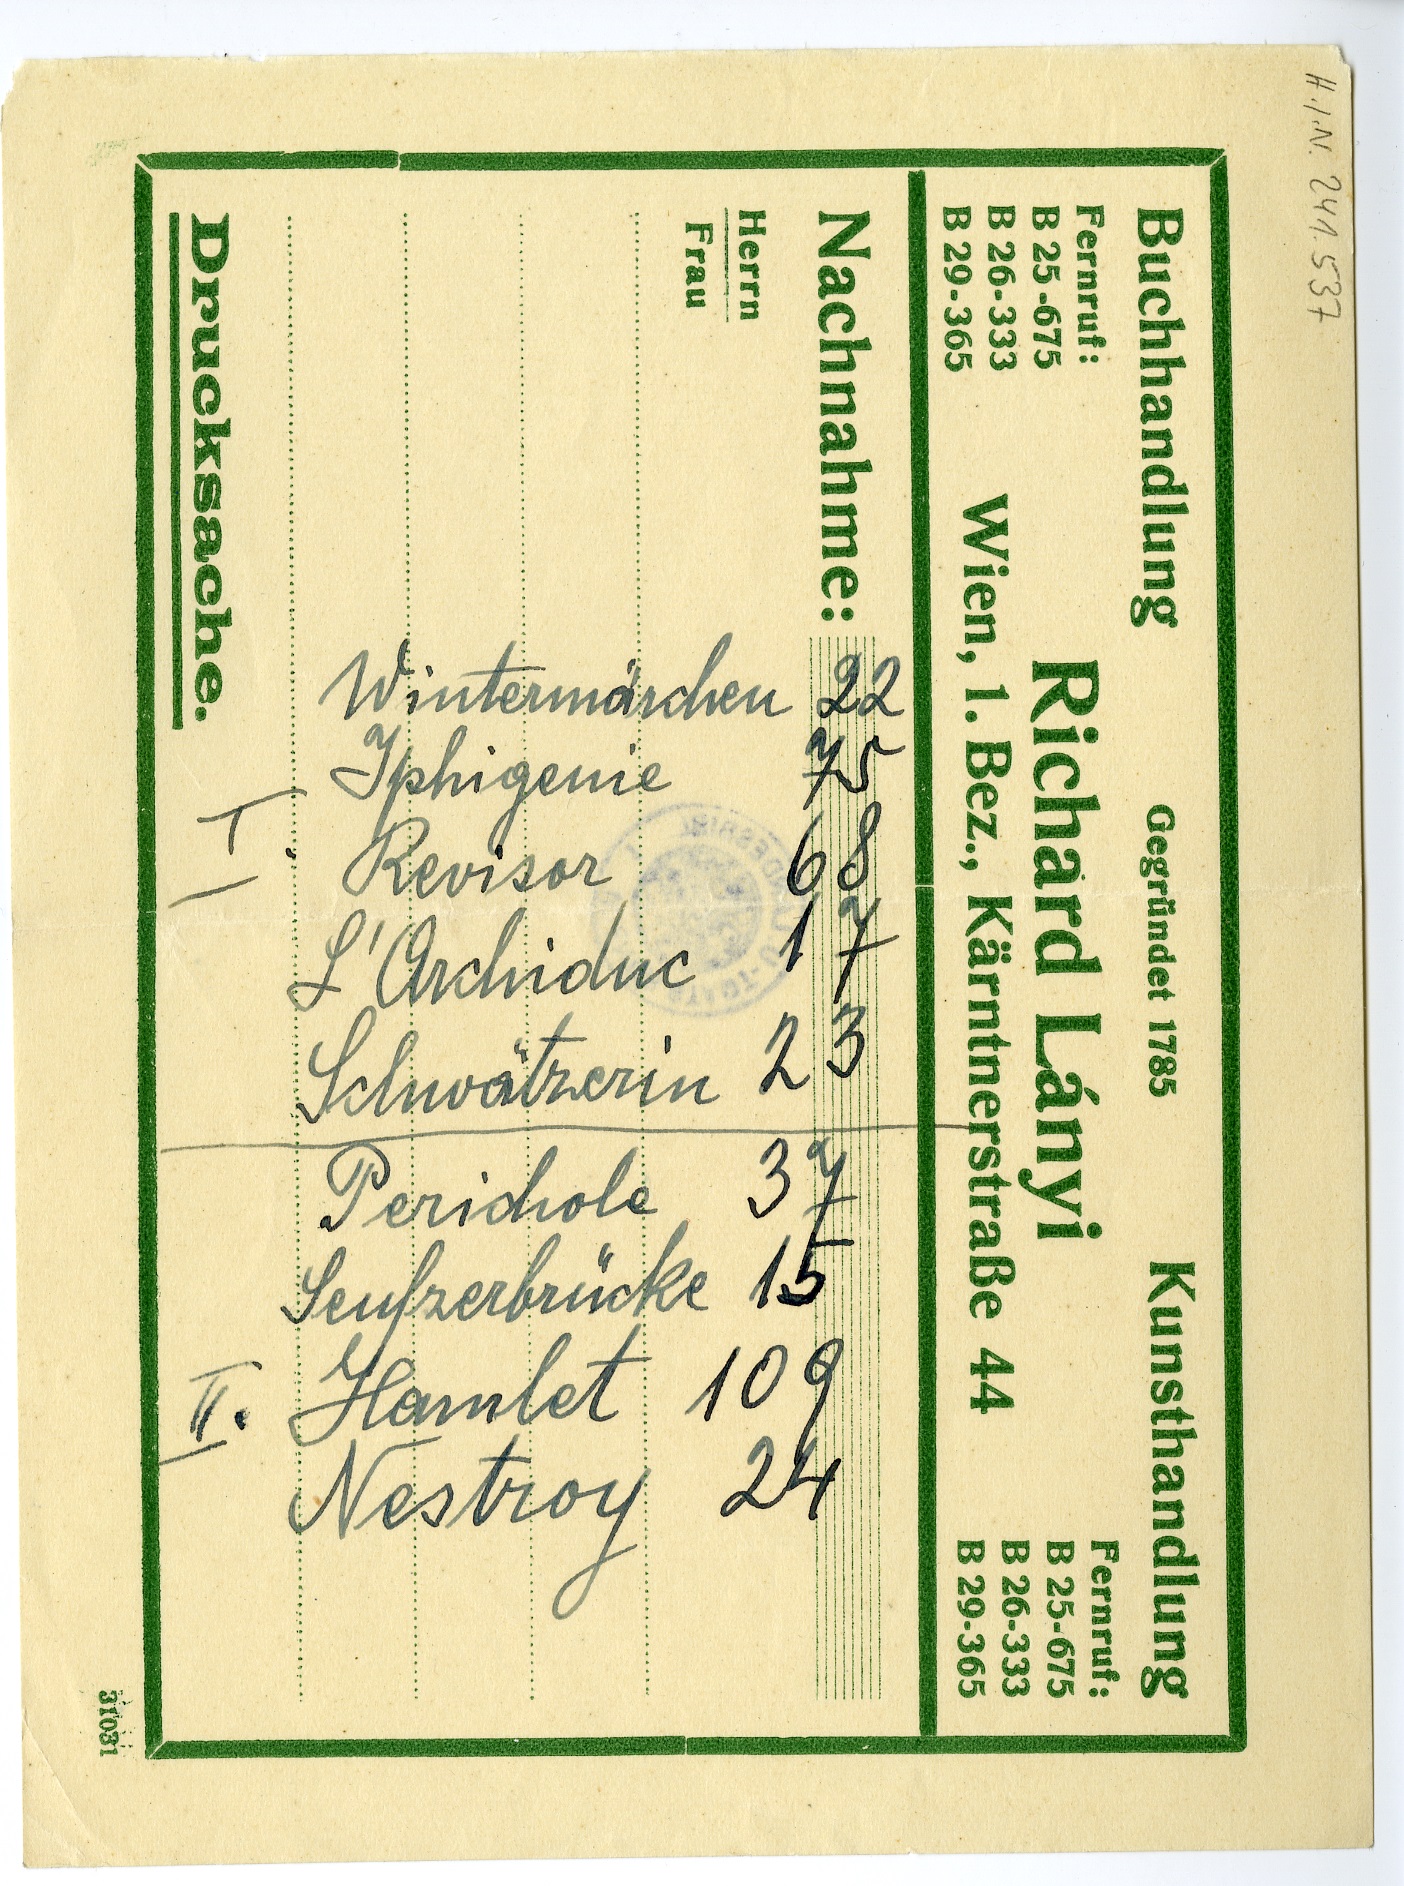 H.I.N. 241.537
Buchhandlung Gegründet 1785 Kunsthandlung
Richard Lányi
Wien, 1. Bez., Kärntnerstraße 44
Fernruf:
B 25-675
B 26-333
B 29-365
Fernruf:
B 25-675
B 26-333
B 29-365
Nachnahme:
Herrn
Frau
Drucksache.
31031
Wintermärchen 22
Iphigenie 75
I. Revisor 68
L'Archiduc 17
Schwätzerin 23
Perichole 37
Seufzerbrücke 15
II. Hamlet 109
Nestroy 24